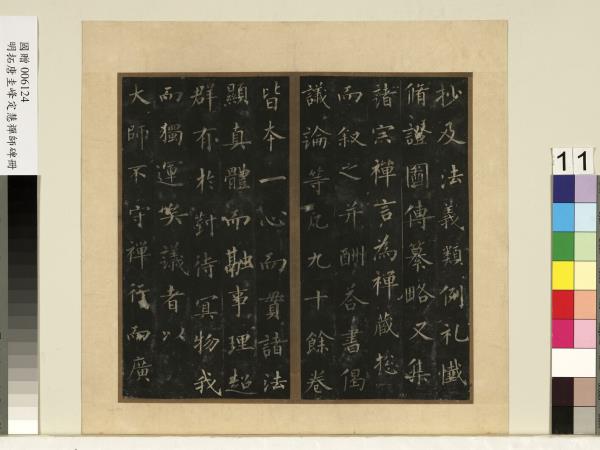 抄及法義類例礼懺
脩證圖傳纂略又集
諸宗禪言為禪藏揔
而叙之并酬荅書偈
議論等凡九十餘卷
皆本一心而貫諸法
顯真體而融事理超
群有於對待冥物我
而獨運矣議者以
大師不守禪行而廣
國贈 006124
明拓唐圭峰定慧禪師碑冊
11